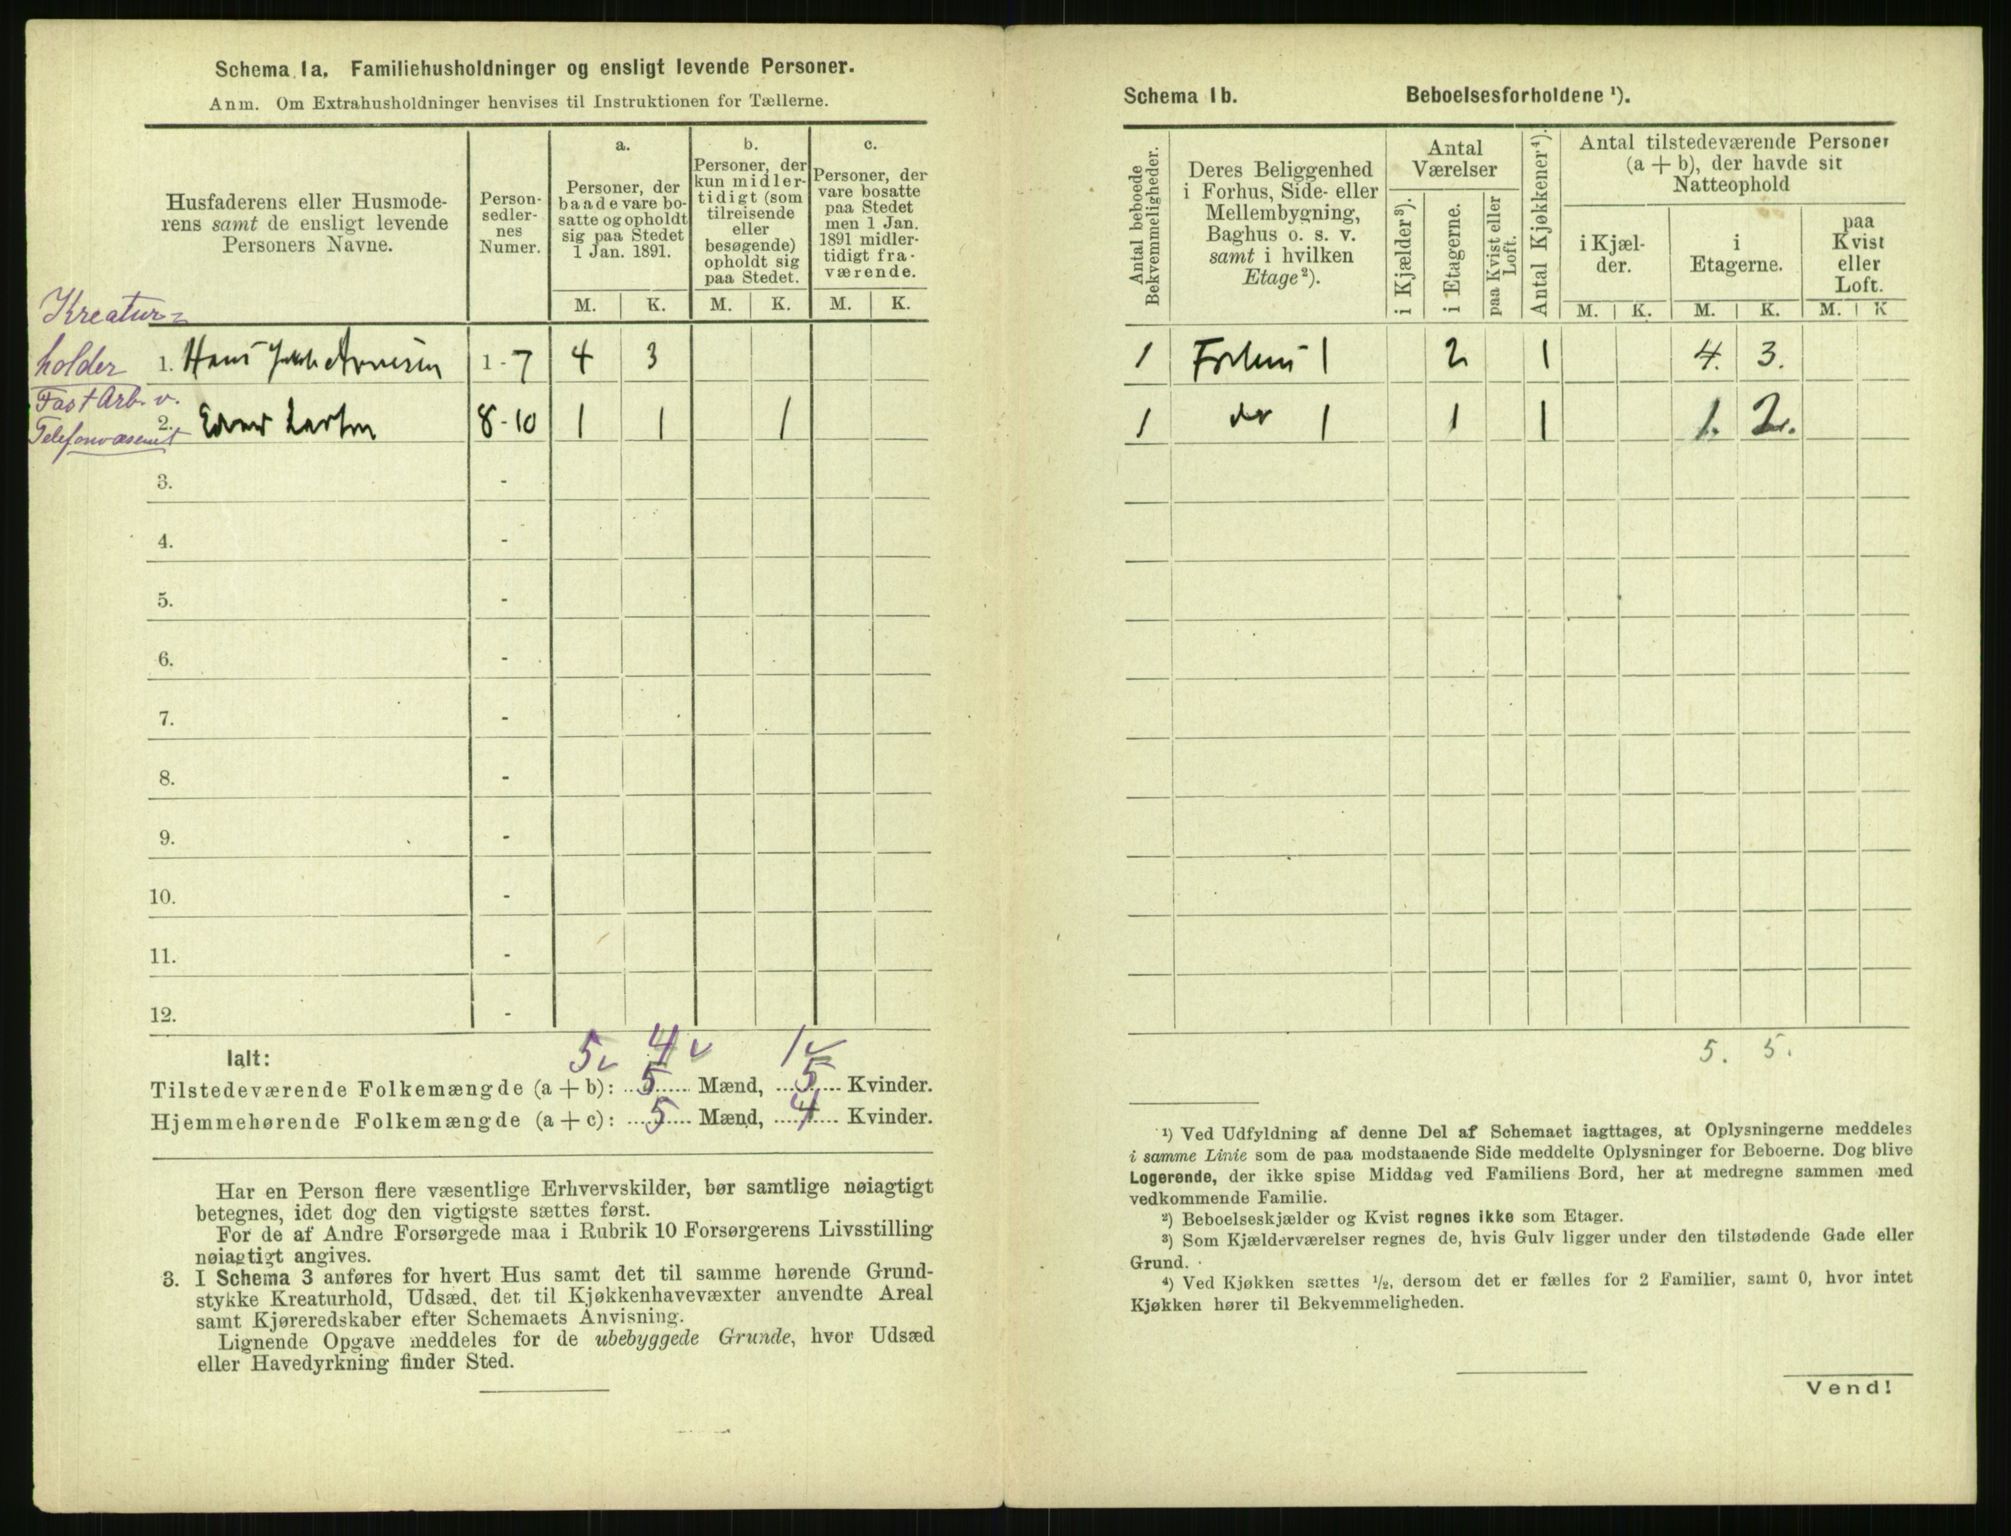 Schema 1a. Familiehusholdninger og ensligt levende Personer.
Anm. Om Extrahusholdninger henvises til Instruktionen for Tællerne.
Husfaderens eller Husmode-
rens samt de ensligt levende
Personers Navne.
Person-
sedler-
nes
Numer.
a.
Personer, der
baade vare bo-
satte og opholdt
sig paa Stedet
1 Jan. 1891.
b.
Personer, der
kun midler-
tidigt (som
tilreisende
eller
besøgende)
opholdt sig
paa Stedet.
c.
Personer, der
vare bosatte
paa Stedet
men 1 Jan.
1891 midler-
tidigt fra-
værende.
M. K. M. K. M. K.
Kreatur-
holder 1. Hans 1-7 4 3
Fast Arb. v.
Telefonvæsenet 2. Larsen 8-10 1 1 1
3. -
4. -
5. -
6. -
7. -
8. -
9. -
10. -
11. -
12. -
Ialt: 5 v 4 v 1 v
Tilstedeværende Folkemængde (a + b): 5 Mænd, 5 Kvinder.
Hjemmehørende Folkemængde (a + c): 5 Mænd, 4 Kvinder.
Har en Person flere væsentlige Erhvervskilder, bør samtlige nøiagtigt
betegnes, idet dog den vigtigste sættes først.
For de af Andre Forsørgede maa i Rubrik 10 Forsørgerens Livsstilling
nøiagtigt angives.
3. I Schema 3 anføres for hvert Hus samt det til samme hørende Grund-
stykke Kreaturhold, Udsæd, det til Kjøkkenhavevæxter anvendte Areal
samt Kjøreredskaber efter Schemaets Anvisning.
Lignende Opgave meddeles for de ubebyggede Grunde, hvor Udsæd
eller Havedyrkning finder Sted.
Schema 1b. Beboelsesforholdene ¹).
Antal beboede
Bekvemmeligheder.
Deres Beliggenhed
i Forhus, Side- eller
Mellembygning,
Baghus o. s. v.
samt i hvilken
Etage²).
Antal
Værelser
i Kjælder³).
i Etagerne.
paa Kvist eller
Loft.
Antal Kjøkkener⁴).
Antal tilstedeværende Personer
(a + b), der havde sit
Natteophold
i Kjæl-
der.
i
Etagerne.
paa
Kvist
eller
Loft.
M. K. M. K. M. K
1 Forhus 1 2 1 4. 3.
1 do 1 1 1 1. 2.
5. 5.
¹) Ved Udfyldning af denne Del af Schemaet iagttages, at Oplysningerne meddeles
i samme Linie som de paa modstaaende Side meddelte Oplysninger for Beboerne. Dog blive
Logerende, der ikke spise Middag ved Familiens Bord, her at medregne sammen med
vedkommende Familie.
²) Beboelseskjælder og Kvist regnes ikke som Etager.
³) Som Kjælderværelser regnes de, hvis Gulv ligger under den tilstødende Gade eller
Grund.
⁴) Ved Kjøkken sættes ½, dersom det er fælles for 2 Familier, samt 0, hvor intet
Kjøkken hører til Bekvemmeligheden.
Vend!